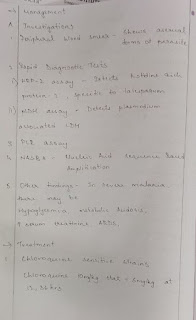 → Management
A Investigations
1. Peripheral blood smear - shows asexual
forms of parasite
2. Rapid Diagnostic Tests
i) HRP-2 assay - Detects Histidine Rich
protein-2, specific for falciparum
ii) pLDH assay - Detects plasmodium
associated LDH
3. PCR assay
4. NASBA - Nucleic Acid Sequence Based
Amplification
5. Other findings - In severe malaria
there may be
hypoglycemia, metabolic acidosis,
↑ serum creatinine, ARDS
→ Treatment
Chloroquine sensitive strains
Chloroquine 10mg/kg stat + 5mg/kg at
12, 24 hrs